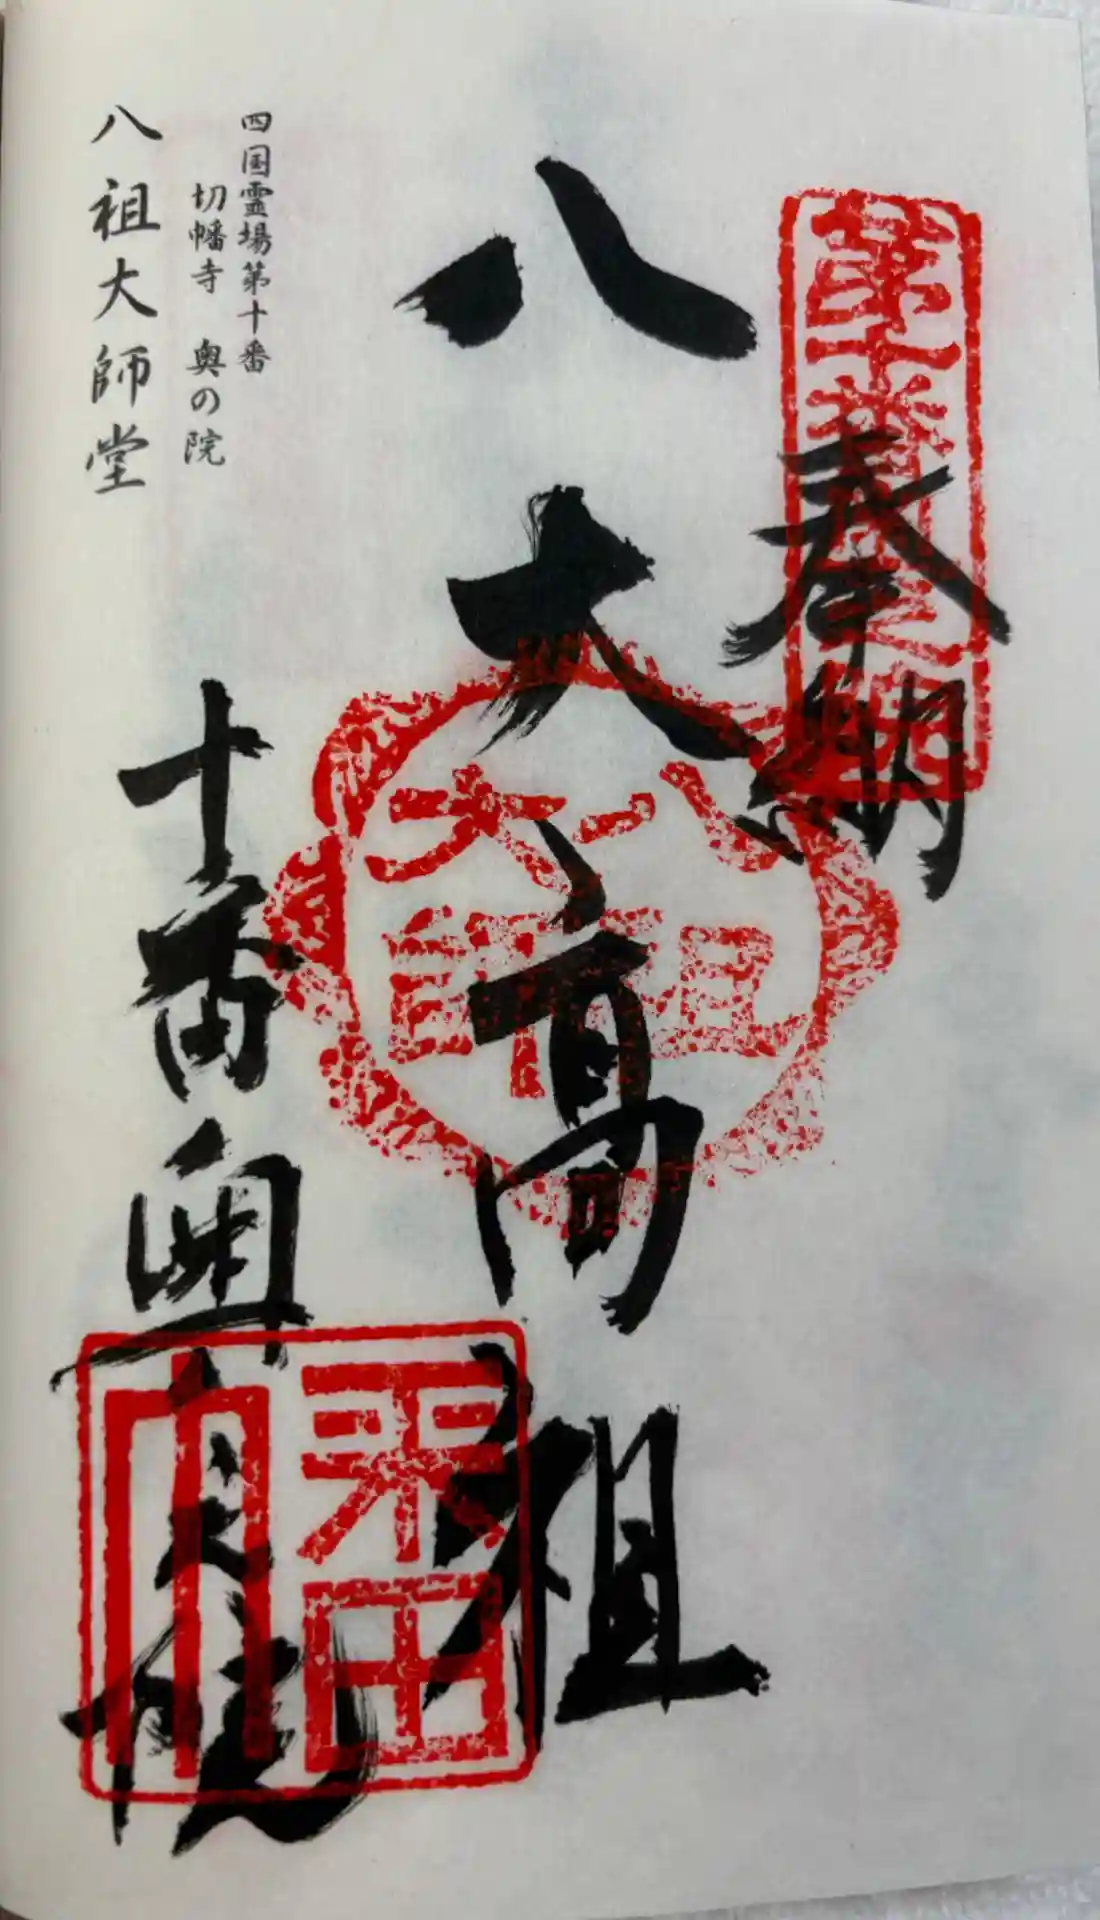 奉納
八大高祖
十番奥之院
四国霊場第十番
切幡寺 奥の院
八祖大師堂
八大
祖師